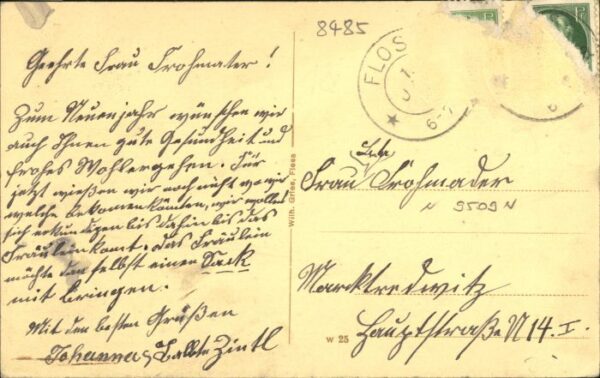 8485
FLOS
6-7
Geehrte Frau Frohmater!
Zum Neuenjahr wünschen wir
auch Ihnen gute Gesundheit und
frohes Wohlergehen. Für
jetzt wießen wir noch nicht wo wir
welche bekomen könten, wir wollen
sich erkundigen bis dahin bis das
Fräulein komt. das Fräulein
möchte den selbst einen Sack
mit bringen.
Mit den besten Grüßen
Johanna Zintl
Wilh. Gries, Floss
Frau Frohmader
9509
Marktredwitz
Hauptstraße N 14. I.
W 25